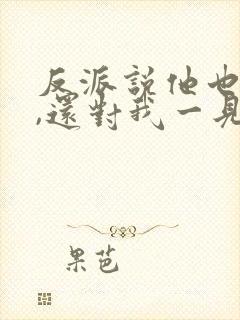 反派說他也
,還對我一見
果芭